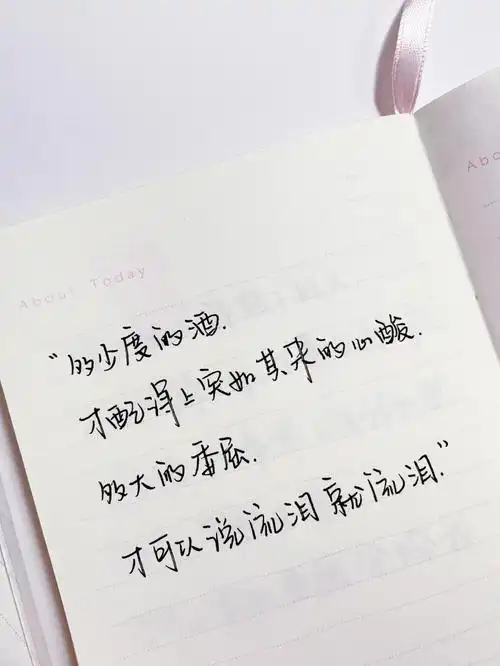 About Today
“多少度的酒.
才配得上突如其来的心酸.
多大的委屈.
才可以说流泪就流泪.”
Abo